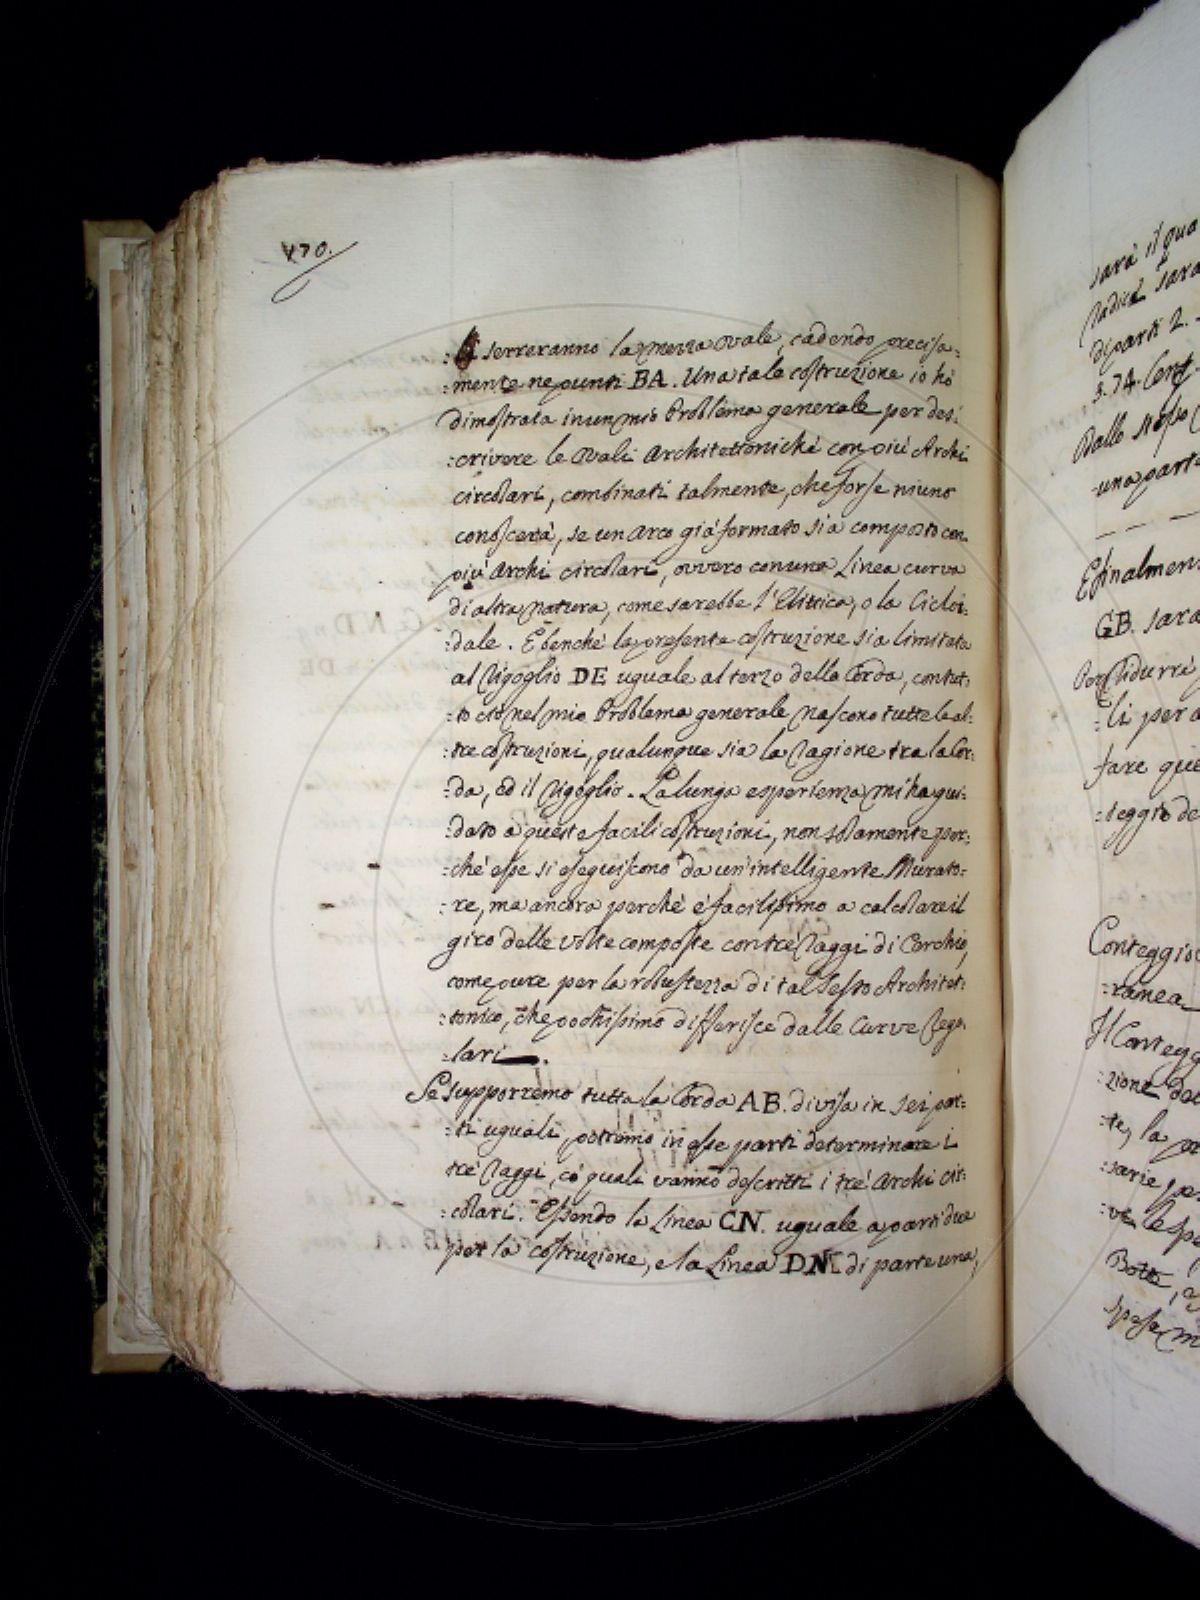 470.
serreranno la mezza ovale, cadendo precisa=
=mente ne punti BA. Una tale costruzione io hò
dimostrata in un mio Problema generale per des=
=crivere le Ovali Architettoniche con più Archi
circolari, combinati talmente, che forse niuno
conoscerà, se un Arco già formato sia composto con
più Archi circolari, ovvero con una Linea curva
di altra natura, come sarebbe l'Elittica, o la Cicloi=
=dale. E benchè la presente costruzione sia limitata
al Rigoglio DE uguale al terzo della Corda, contut=
=to ciò nel mio Problema generale nascono tutte le al=
=tre costruzioni, qualunque sia la Ragione tra la Cor=
=da, ed il Rigoglio. La lunga esperienza mi ha gui=
=dato a queste facili costruzioni, non solamente per=
=chè esse si eseguiscono da un'intelligente Murato=
=re, ma ancora perchè è facilissimo a calcolare il
giro delle volte composte con trè Raggi di Cerchio,
come pure per la robustezza di tal Sesto Architet=
=tonico, che pochissimo differisce dalle Curve Rego=
=lari.
Se supporremo tutta la Corda AB. divisa in sei par=
=ti uguali, potremo in esse parti determinare i
trè Raggi, co' quali vanno descritti i trè Archi cir=
=colari. Essendo la Linea CN. uguale a parti due
per la costruzione, e la Linea DN. di parte una,
sarà il qua
Radice sara
di parti 2.
3. 74. Cent.
Dallo stesso
una parte
E finalmen
GB. sara
Per Ridurre
=li per
fare que
=teggio de
Conteggio
=ranea
Il Conteg
=zione del
=te, la
=sarie per
=ve le spe
Botte,
spese m